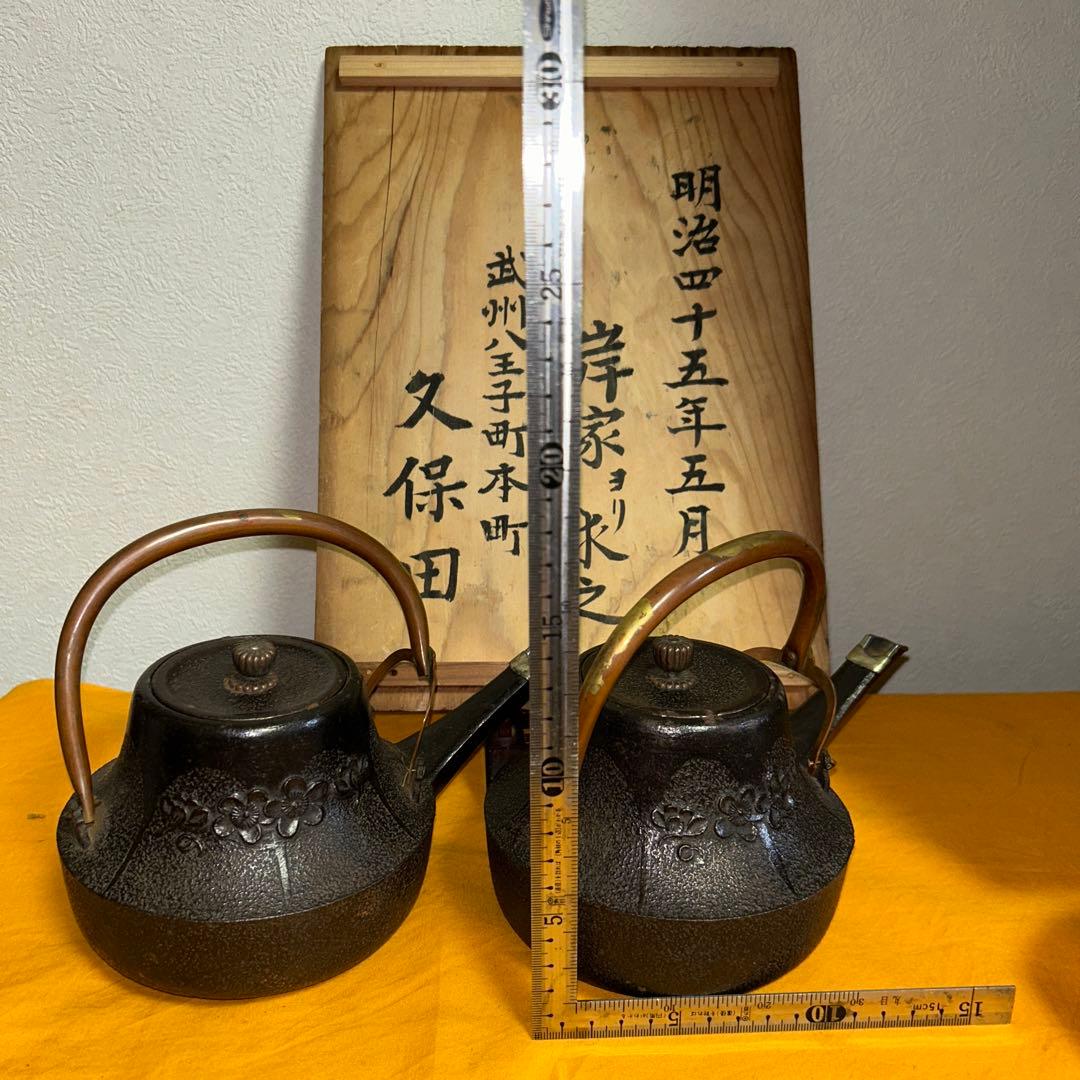 明治四十五年五月
岸家ヨリ求之
武州八王子町本町
久保田
30
25
20
15
10
5
5
10
15cm
15
20
30
丸目